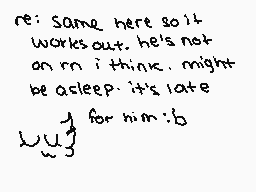 re: same here so it
works out. he's not
on rn i think. might
be asleep. it's late
for him :b